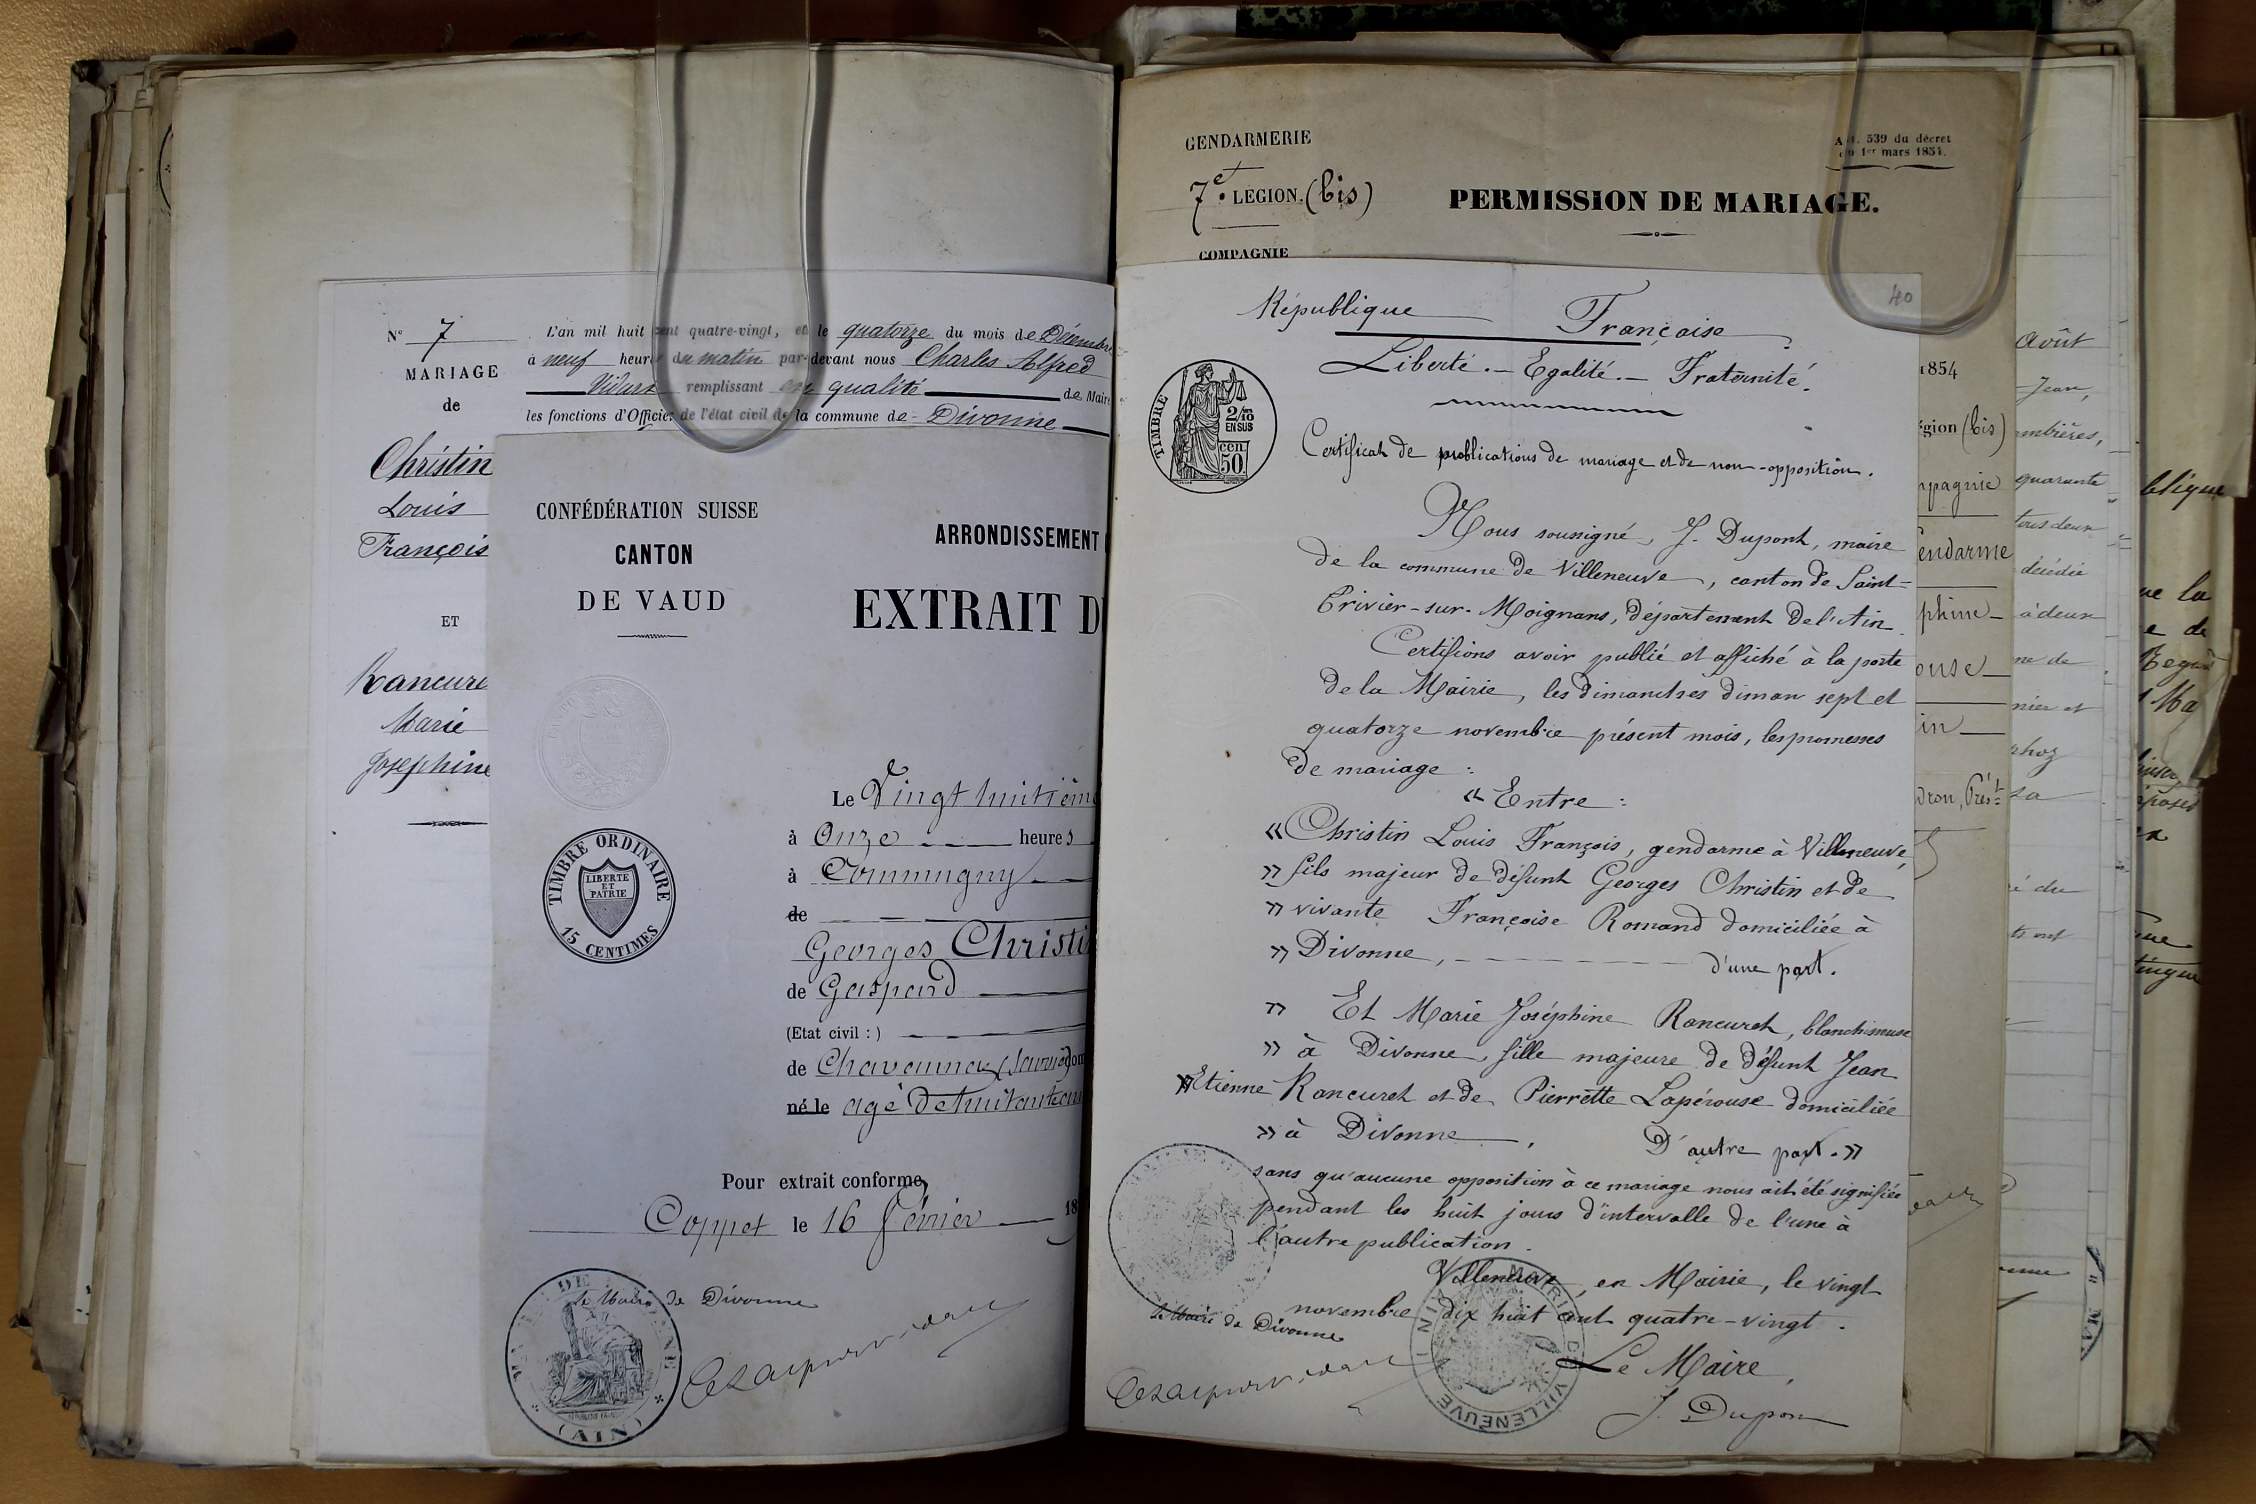 N° 7
MARIAGE
de
Christin
Louis
François
ET
Rancure
Marie
Joséphine
L'an mil huit cent quatre-vingt, et le quatorze du mois de Décembre
à neuf heures du matin par-devant nous Charles Alfred
Vidart remplissant en qualité de Maire
les fonctions d'Officier de l'état civil de la commune de Divonne
CONFÉDÉRATION SUISSE
CANTON
DE VAUD
ARRONDISSEMENT
EXTRAIT D
TIMBRE ORDINAIRE
LIBERTE
ET
PATRIE
15 CENTIMES
Le Vingt huitième
à Onze heures
à Commugny
de
Georges Christi
de Gaspard
(Etat civil :)
de Chavannes
né le agé de huitante ans
Pour extrait conforme,
Coppet le 16 février 18
le Maire de Divonne
(AIN)
GENDARMERIE
7e. LÉGION. (bis)
COMPAGNIE
Art. 539 du décret
du 1er mars 1854.
PERMISSION DE MARIAGE.
40
République Française
Liberté. — Egalité. — Fraternité.
TIMBRE
2/10
EN SUS
50 cen.
Certificat de publications de mariage et de non-opposition.
Nous soussigné, J. Dupont, maire
de la commune de Villeneuve, canton de Saint-
Trivier-sur-Moignans, département de l'Ain
Certifions avoir publié et affiché à la porte
de la Mairie, les dimanches diman sept et
quatorze novembre présent mois, les promesses
de mariage :
« Entre :
« Christin Louis François, gendarme à Villeneuve,
» fils majeur de défunt Georges Christin et de
» vivante Françoise Romand domiciliée à
» Divonne, d'une part.
» Et Marie Joséphine Rancuret, blanchisseuse
» à Divonne, fille majeure de défunt Jean
» Etienne Rancuret et de Pierrette Lapérouse domiciliée
» à Divonne, D'autre part. »
sans qu'aucune opposition à ce mariage nous ait été signifiée
pendant les huit jours d'intervalle de l'une à
l'autre publication.
Villeneuve, en Mairie, le vingt
novembre dix huit cent quatre-vingt.
Le Maire,
J. Dupont
le Maire de Divonne
MAIRIE DE VILLENEUVE
AIN
1854
égion (bis)
mpagnie
endarme
phine
ouse
in
dron, Prést
août
Jean,
mbières,
quarante
tous deux
décédée
à deux
ne de
nier et
sa
é du
blique
ue la
e de